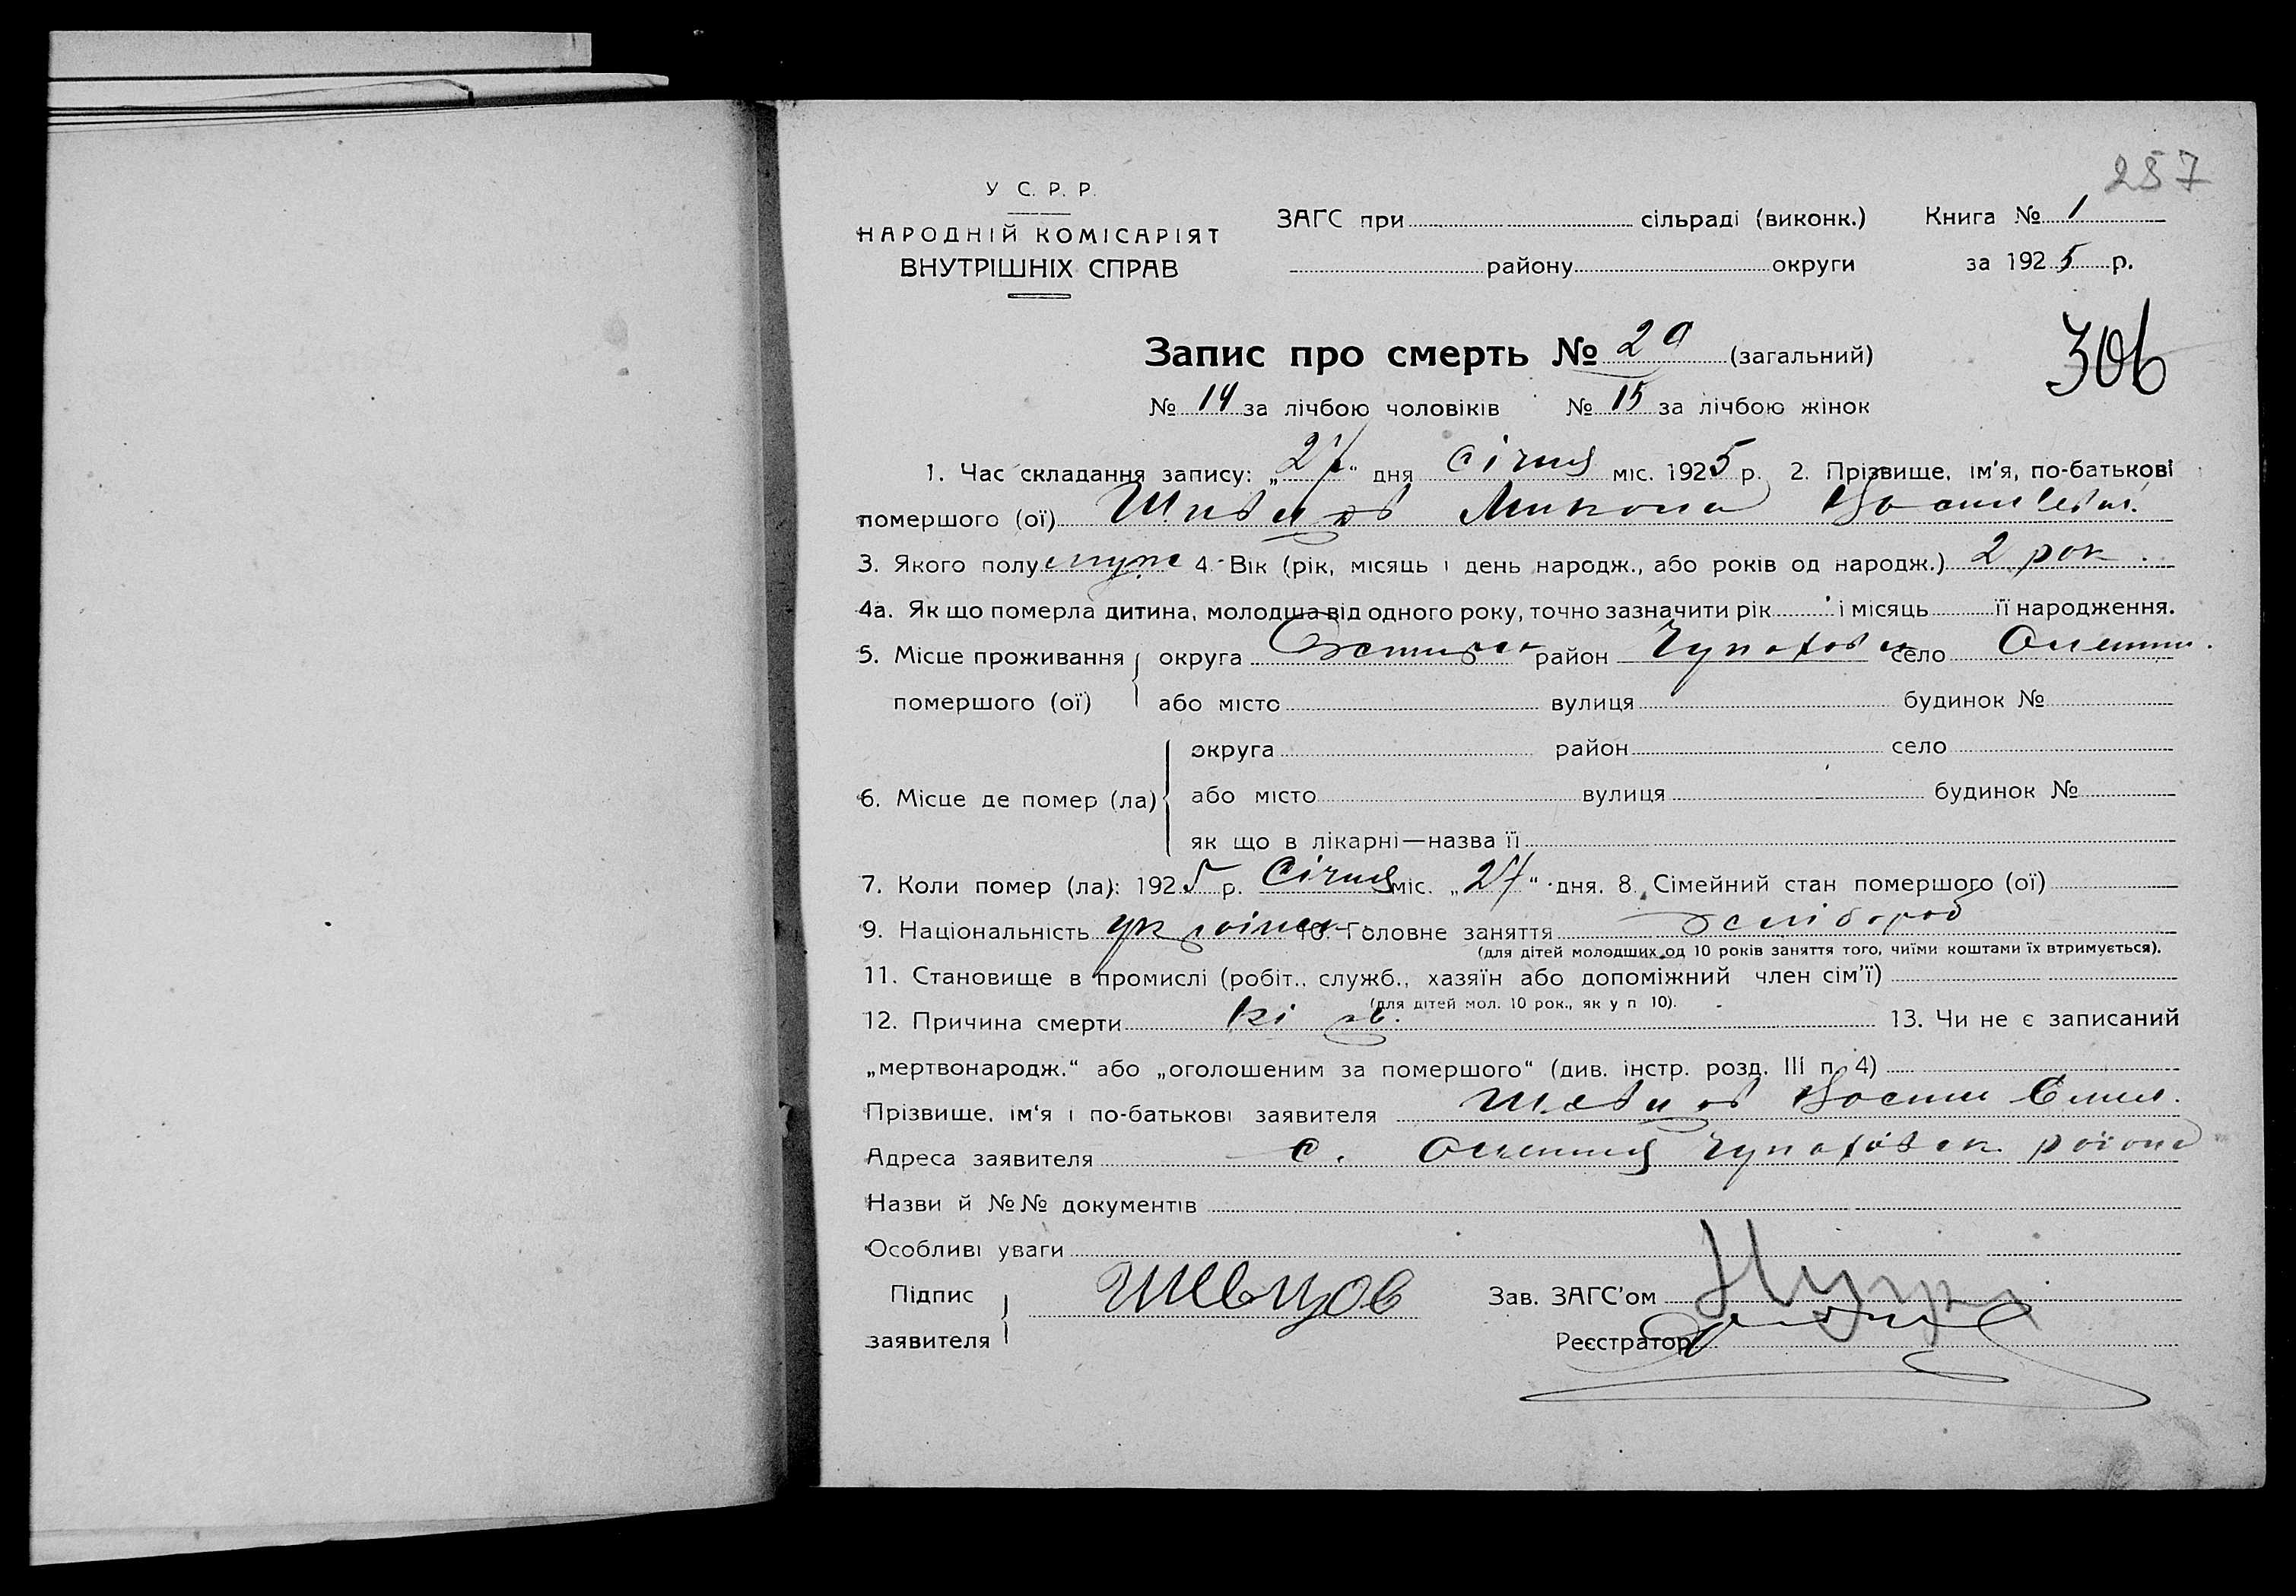 257
У С. Р. Р.
НАРОДНІЙ КОМІСАРІЯТ
ВНУТРІШНІХ СПРАВ
ЗАГС при сільраді (виконк.)
району округи
Книга № 1
за 1925 р.
306
Запис про смерть № 29 (загальний)
№ 14 за лічбою чоловіків № 15 за лічбою жінок
1. Час складання запису: „27“ дня Січня міс. 1925 р. 2. Прізвище, ім'я, по-батькові
помершого (ої) Шевцов Микола
3. Якого полу муж 4. Вік (рік, місяць і день народж., або років од народж.) 2 рок.
4а. Як що померла дитина, молодша від одного року, точно зазначити рік і місяць її народження.
5. Місце проживання округа район село
помершого (ої) або місто вулиця будинок №
округа район село
6. Місце де помер (ла) або місто вулиця будинок №
як що в лікарні—назва її
7. Коли помер (ла): 1925 р. Січня міс. „27“ дня. 8. Сімейний стан помершого (ої)
9. Національність 10. Головне заняття хлібороб
(для дітей молодших од 10 років заняття того, чиїми коштами їх втримується).
11. Становище в промислі (робіт., служб., хазяїн або допоміжний член сім'ї)
(для дітей мол. 10 рок., як у п 10).
12. Причина смерти кір. 13. Чи не є записаний
„мертвонародж.“ або „оголошеним за помершого“ (див. інстр. розд. III п. 4)
Прізвище, ім'я і по-батькові заявителя Шевцов
Адреса заявителя с.
Назви й №№ документів
Особливі уваги
Підпис
заявителя
Шевцов
Зав. ЗАГС'ом
Реєстратор